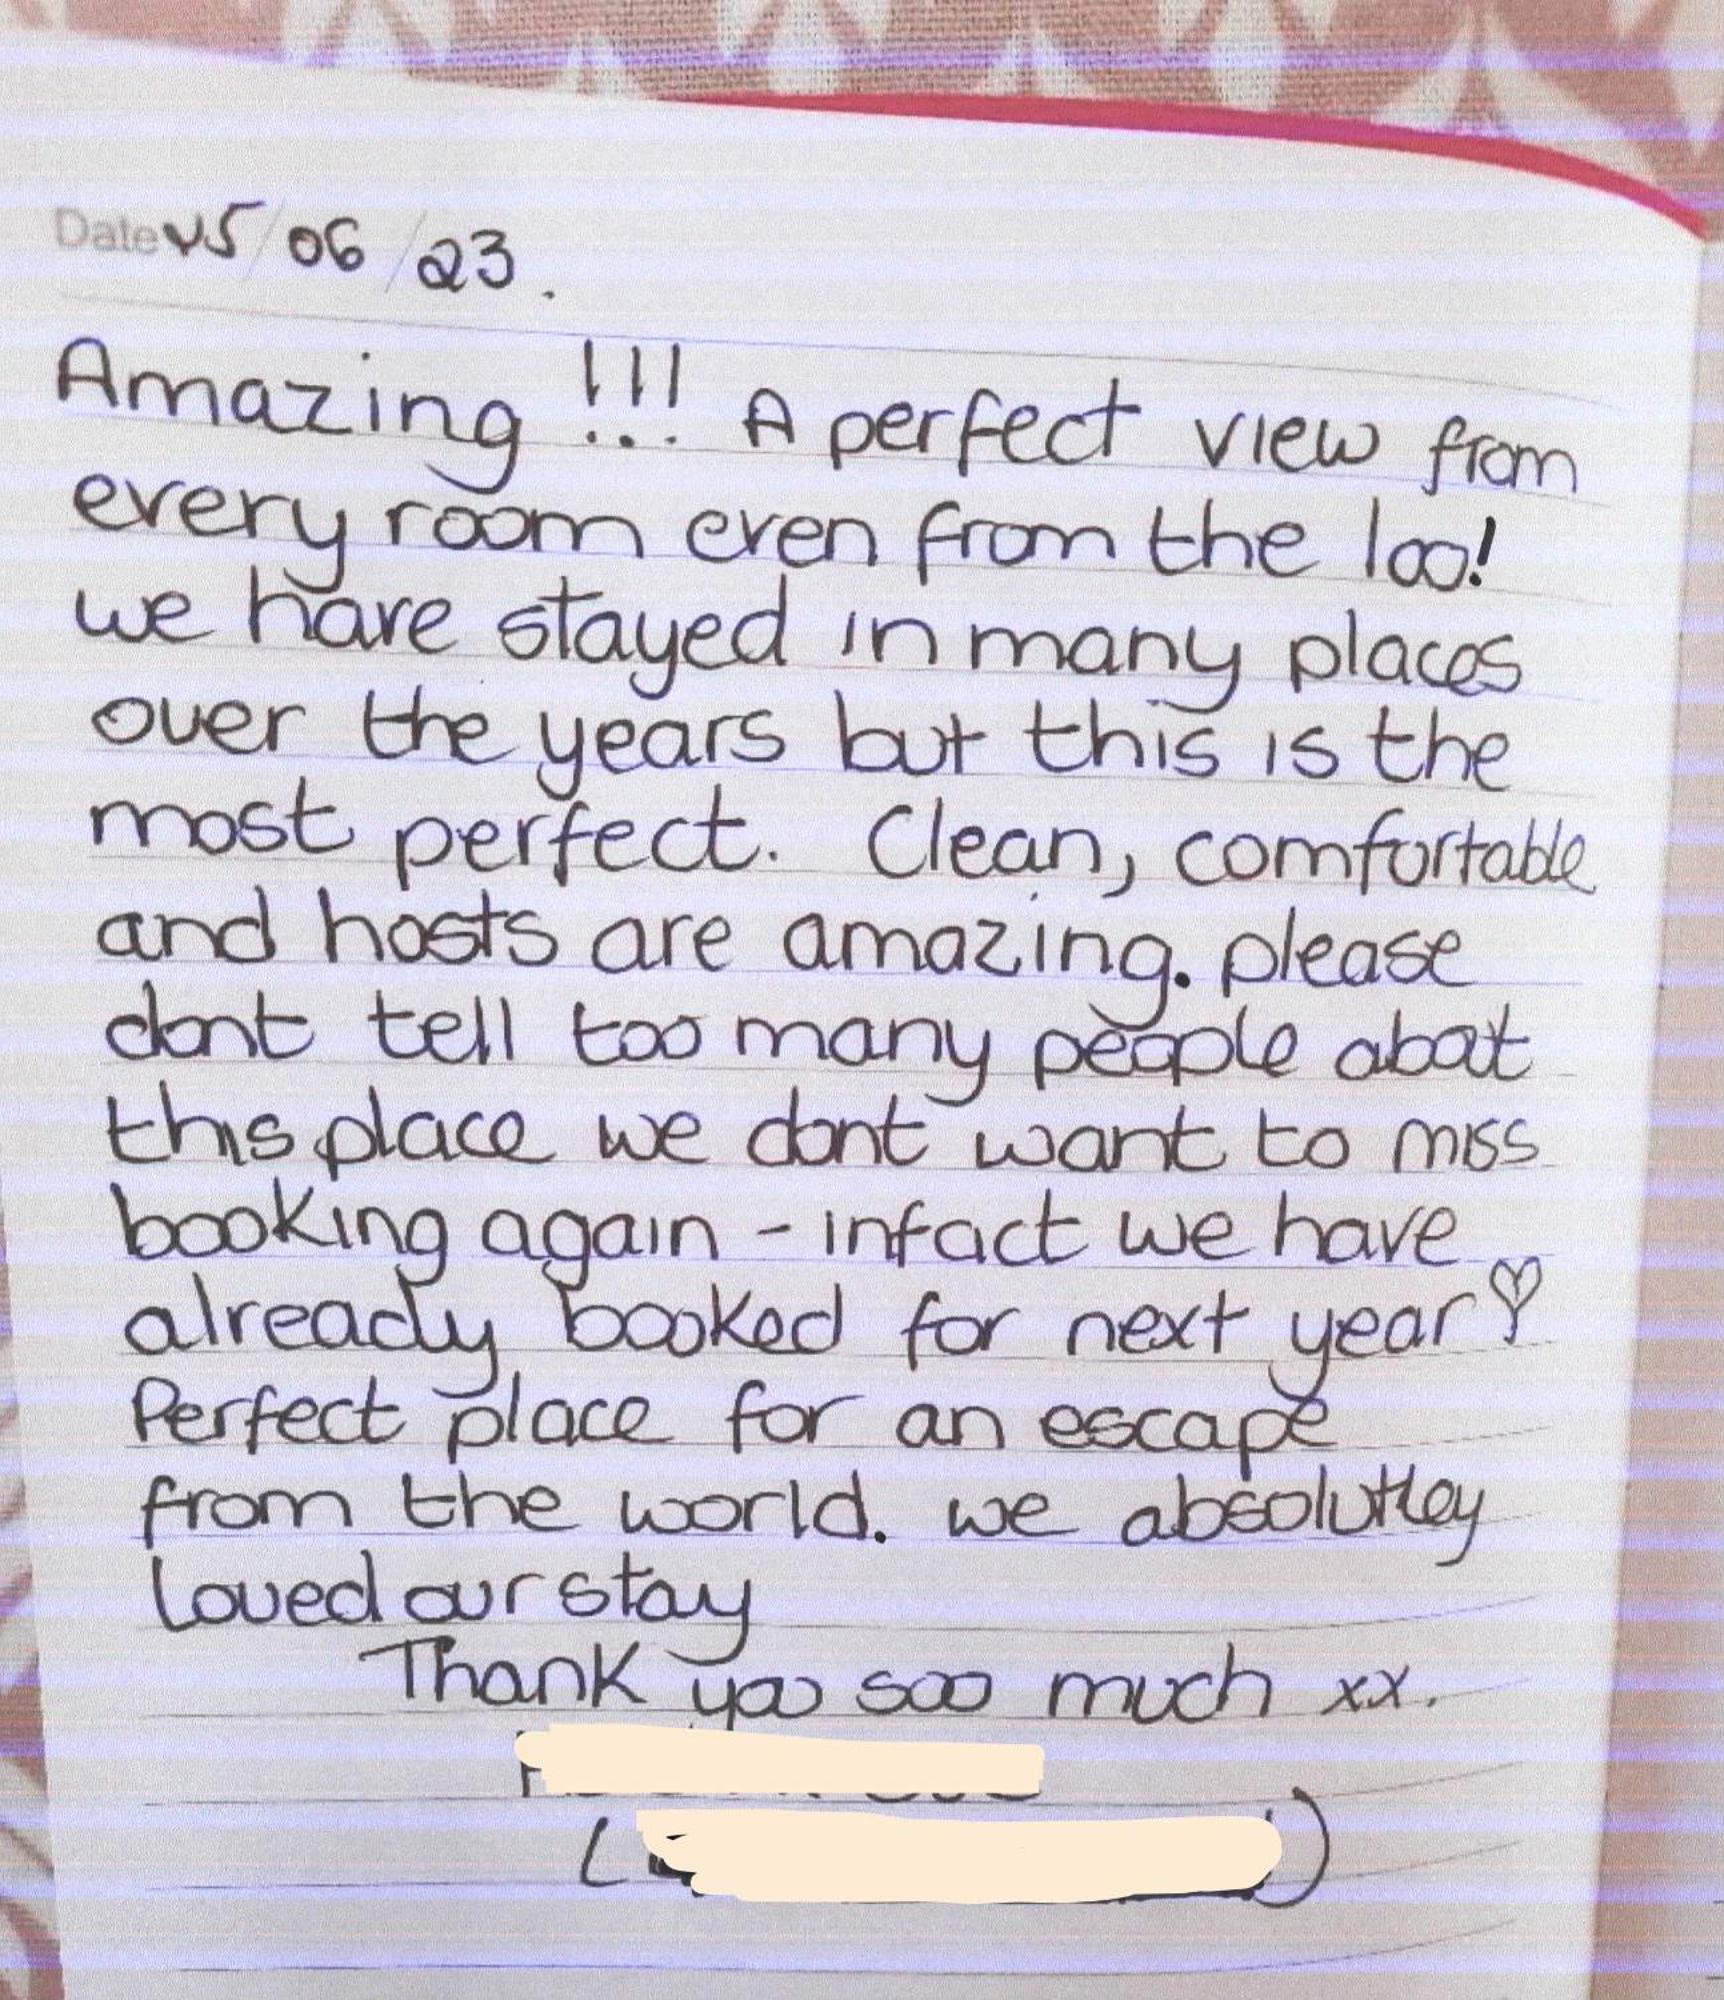 Date 15/06/23.
Amazing !!! A perfect view from
every room even from the loo!
we have stayed in many places
over the years but this is the
most perfect. Clean, comfortable
and hosts are amazing. please
dont tell too many people about
this place we dont want to miss
booking again - infact we have
already booked for next year♡
Perfect place for an escape
from the world. we absolutley
loved our stay
Thank you soo much xx.